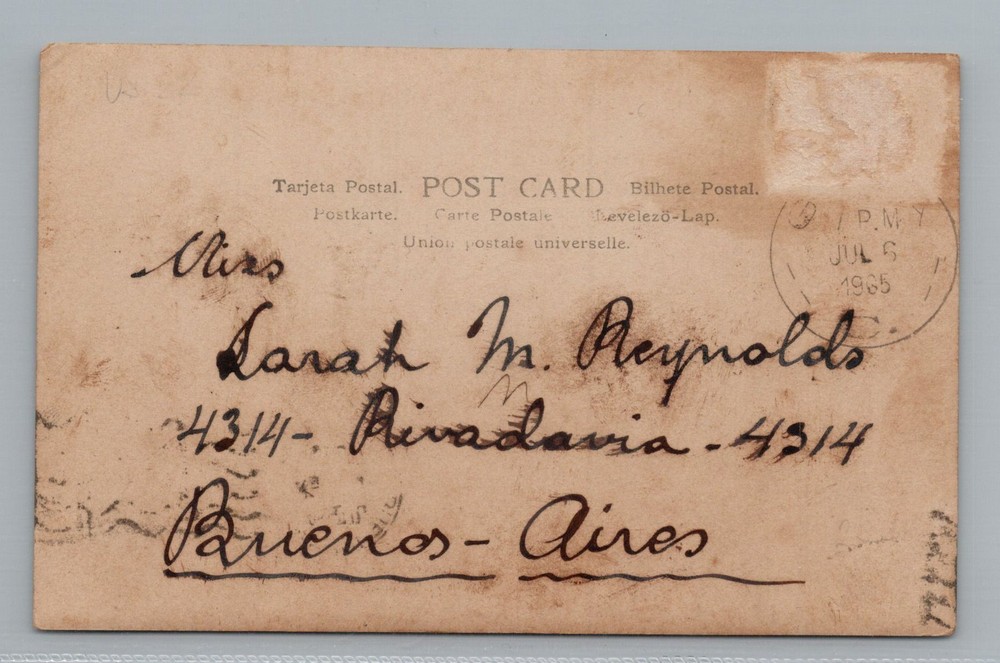 Tarjeta Postal. POST CARD Bilhete Postal.
Postkarte. Carte Postale Levelező-Lap.
Union postale universelle.
P.M
JUL 6
1965
C.
Miss
Sarah M. Reynolds
M
4314- Rivadavia - 4314
Buenos - Aires